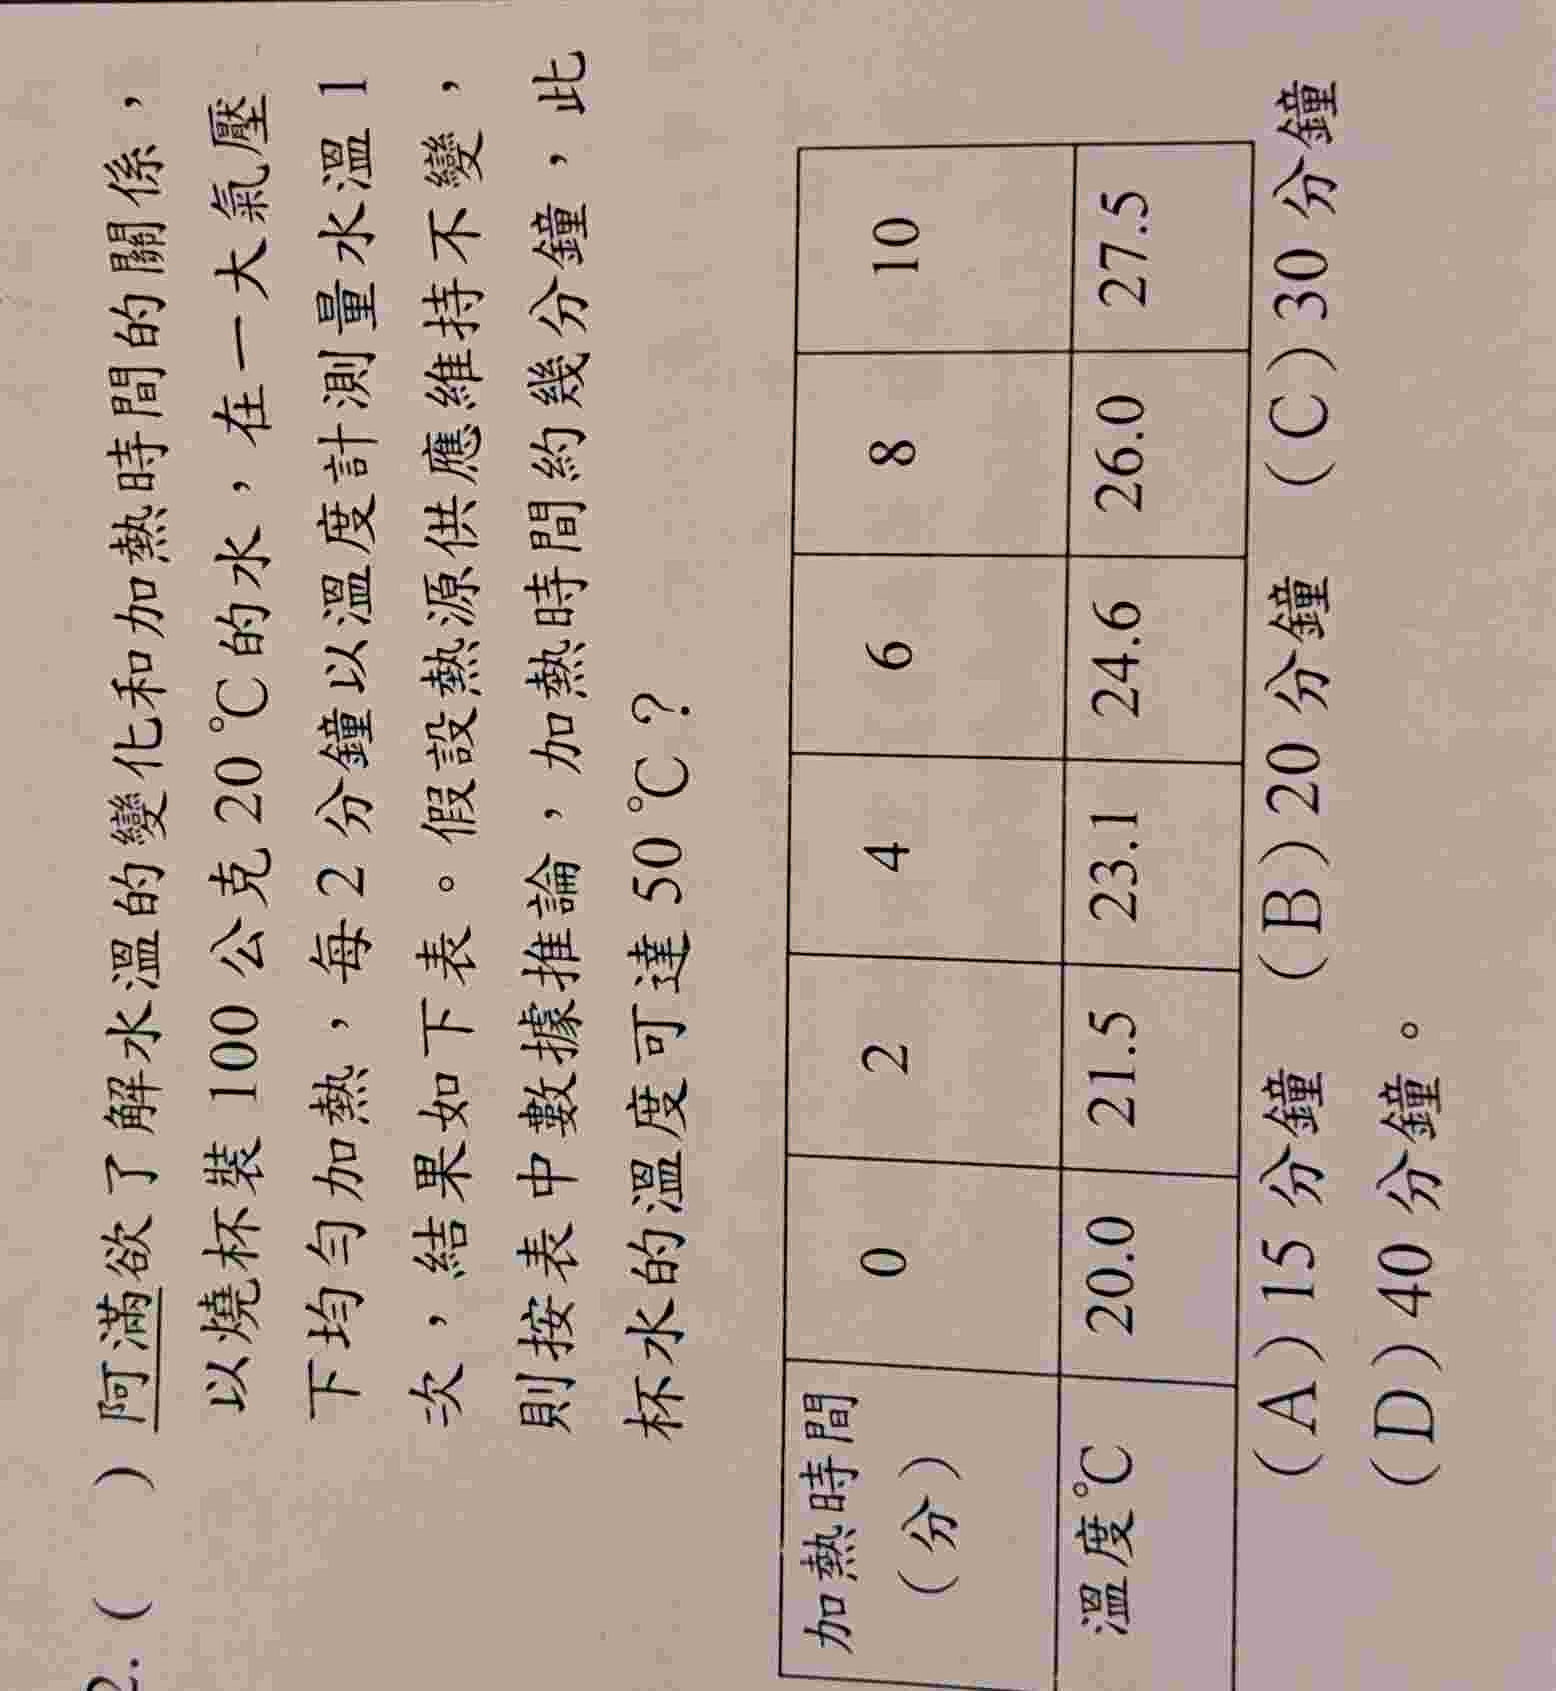 2.(　　) 阿滿欲了解水溫的變化和加熱時間的關係，
以燒杯裝 100 公克 20 ℃的水，在一大氣壓
下均勻加熱，每 2 分鐘以溫度計測量水溫 1
次，結果如下表。假設熱源供應維持不變，
則按表中數據推論，加熱時間約幾分鐘，此
杯水的溫度可達 50 ℃？
加熱時間（分） 0 2 4 6 8 10
溫度℃ 20.0 21.5 23.1 24.6 26.0 27.5
（A）15 分鐘 （B）20 分鐘 （C）30 分鐘
（D）40 分鐘。